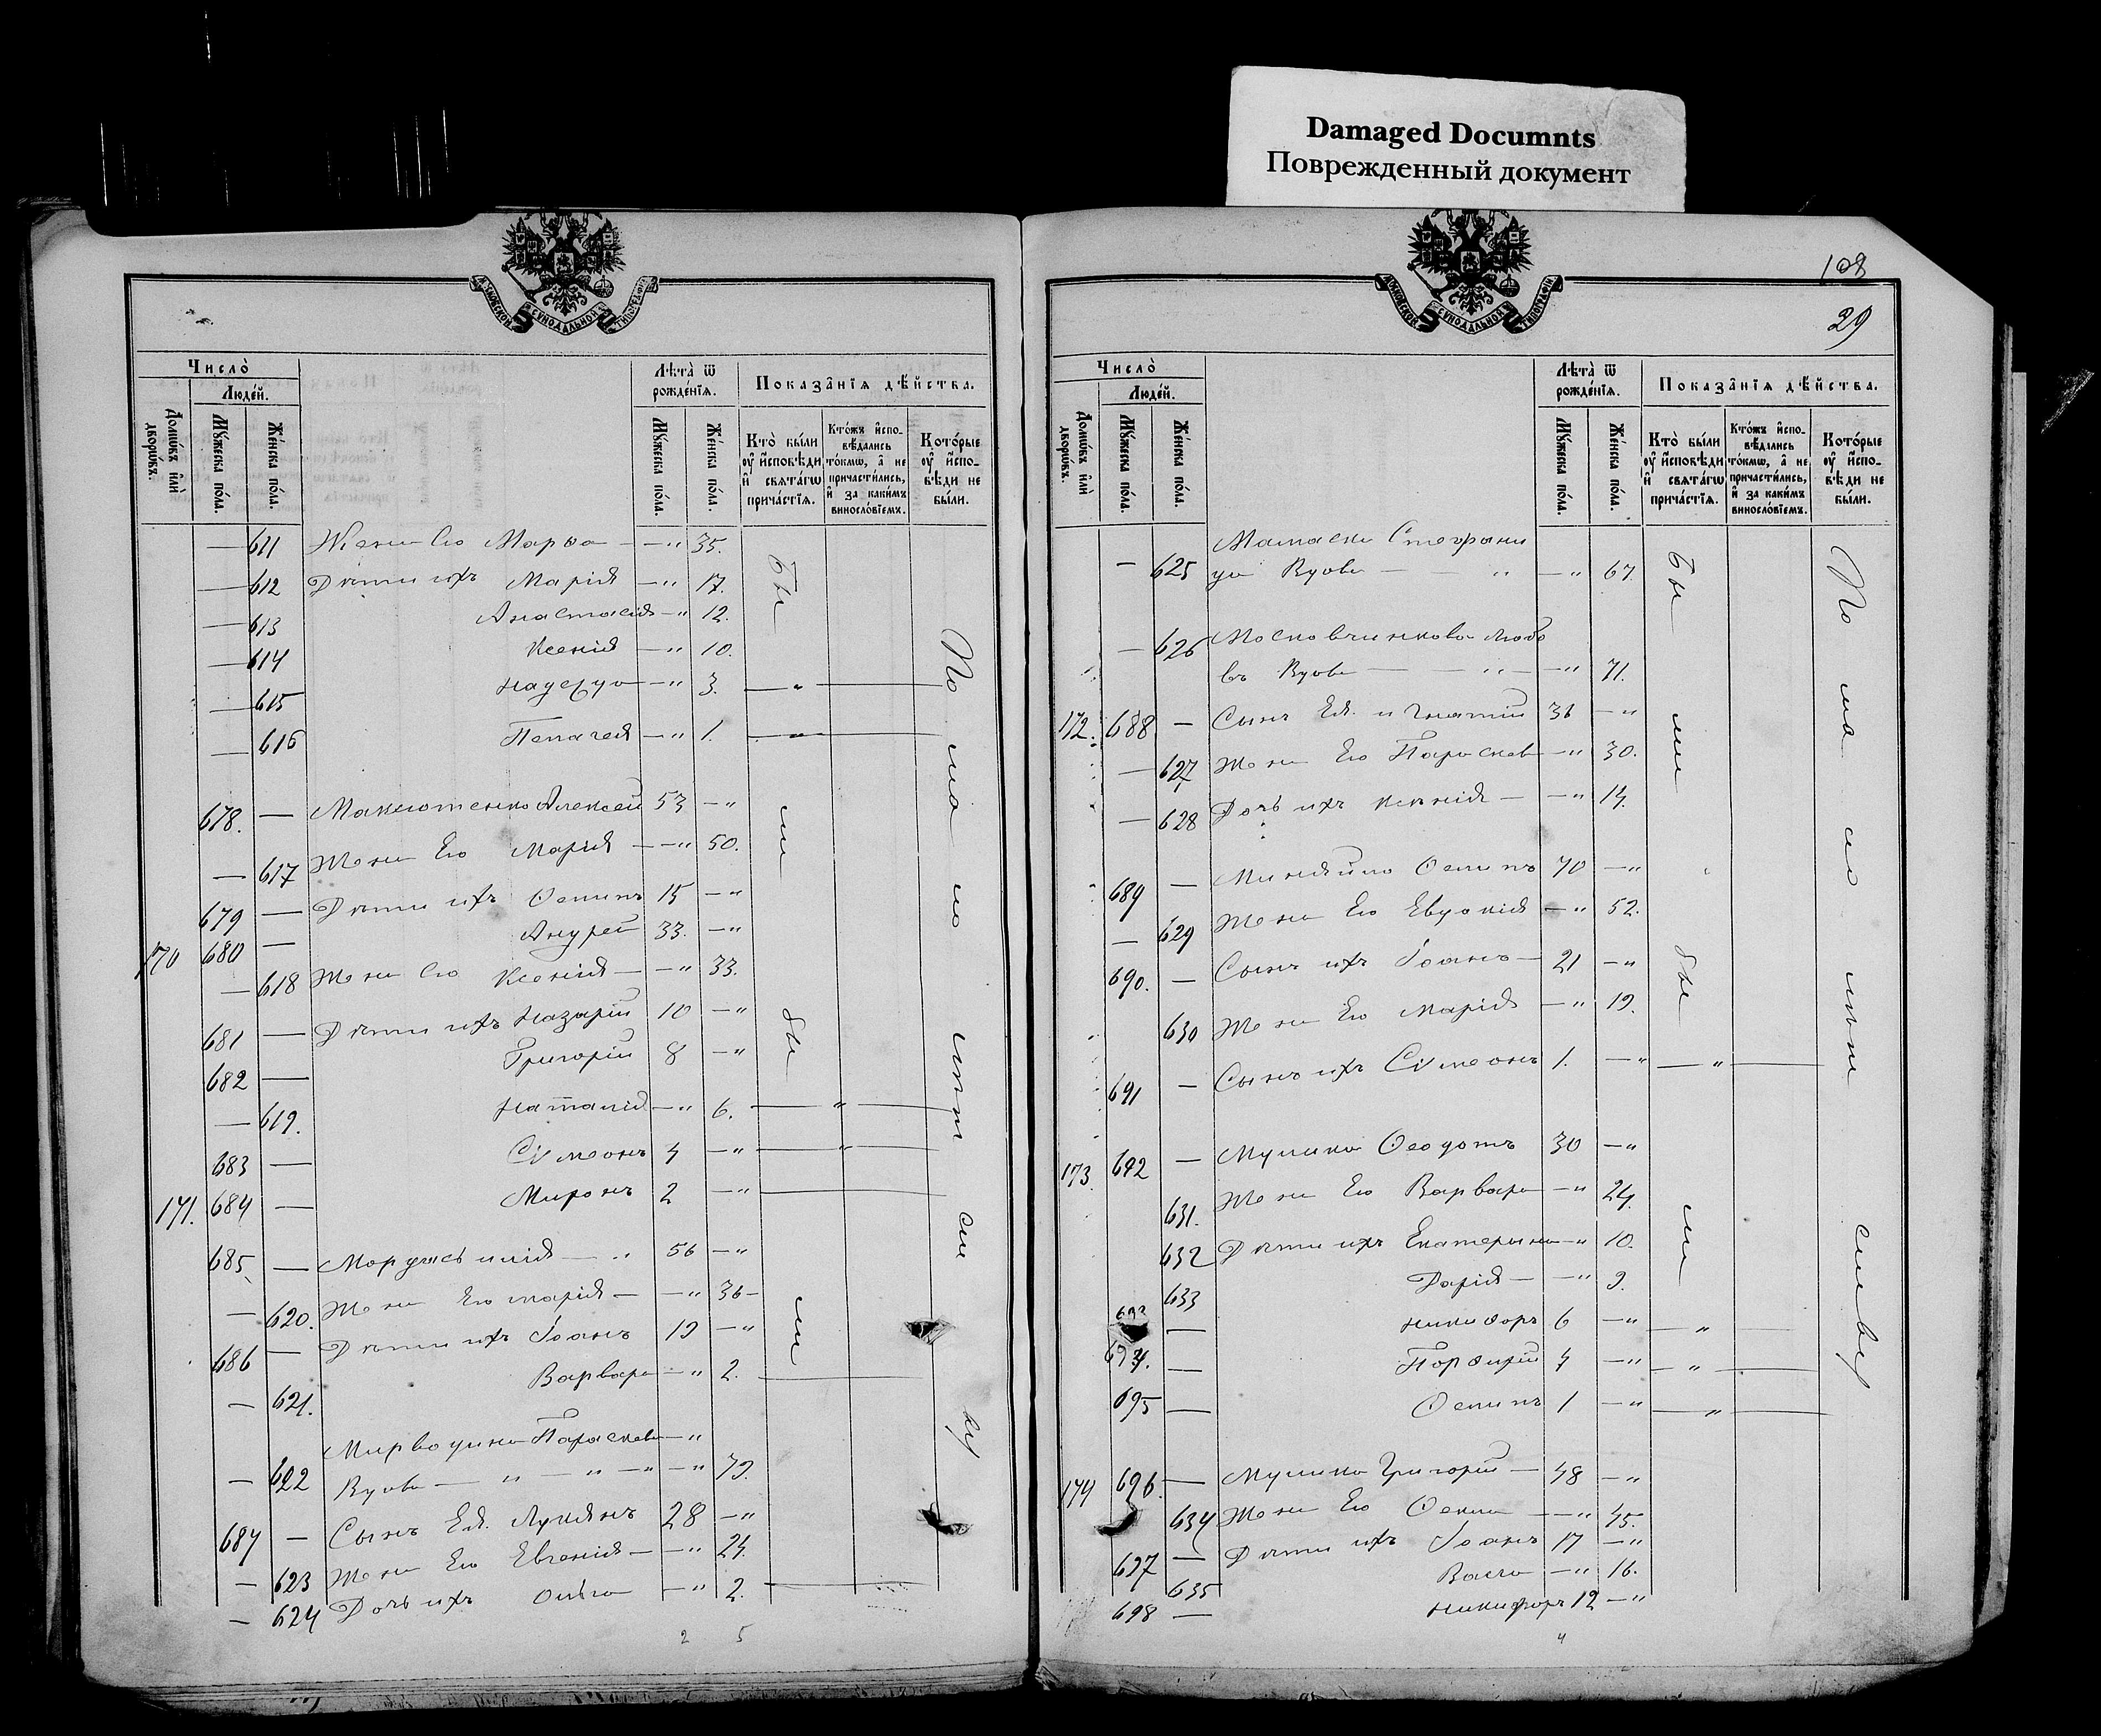 Damaged Documnts
Поврежденный документ
МОСКОВСКОЙ СѴНОДАЛЬНОЙ ТИПОГРАФІИ
Число̀
Людей.
Домѡвъ или дворѡвъ.
Мꙋжеска пола.
Женска пола.
Лѣта̀ ѿ рожденїѧ.
Мꙋжеска пола.
Женска пола.
Показанїѧ дѣйства.
Кто̀ были оу҆ исповѣди и свѧтагѡ причастїѧ.
Ктожъ исповѣдались токмѡ, а не причастились, и за какимъ винословїемъ.
Которые оу҆ исповѣди не были.
— 611 Жена Его Марѳа — —" 35.
— 612 Дѣти ихъ Марія —" 17.
— 613 Анастасія —" 12.
— 614 Ксенія —" 10.
— 615 —" 3. — " —
— 616 Пелагея —" 1. — " —
678. — Алексей 53 —"
— 617 Жена Его Марія —" 50.
679 — Дѣти ихъ Осипъ 15 —"
170 680 — Андрей 33. —"
— 618 Жена Его Ксенія — —" 33.
681 — Дѣти ихъ Назарій 10 —"
682 — Григорій 8 —"
— 619. Наталія —" 6. — " —
683 — Сѵмеонъ 4 —" — " —
171. 684 — Миронъ 2 —" —
685 — Илія — 56 —"
— 620. Жена Его Марія — —" 36 —
686 — Дѣти ихъ Іоанъ 19 —"
— 621. Варвара —" 2. —
Параскева —"
— 622 Вдова — " — " — " —" 79.
687 — Сынъ Ея Лукіянъ 28 —"
— 623 Жена Его Евгенія — —" 24.
— 624 Дочь ихъ Ольга —" 2. —
2 5
Были
По малолѣтству
108
29
МОСКОВСКОЙ СѴНОДАЛЬНОЙ ТИПОГРАФІИ
Число̀
Людей.
Домѡвъ или дворѡвъ.
Мꙋжеска пола.
Женска пола.
Лѣта̀ ѿ рожденїѧ.
Мꙋжеска пола.
Женска пола.
Показанїѧ дѣйства.
Кто̀ были оу҆ исповѣди и свѧтагѡ причастїѧ.
Ктожъ исповѣдались токмѡ, а не причастились, и за какимъ винословїемъ.
Которые оу҆ исповѣди не были.
— 625 Вдова — " —" 67.
— 626 Любо
въ Вдова — " — —" 71.
172. 688 — Сынъ Ея Игнатій 36 —"
— 627 Жена Его Параскев —" 30.
— 628 Дочь ихъ Ксенія — —" 14.
689 — Осипъ 70 —"
— 629 Жена Его Евдокія —" 52.
690. — Сынъ ихъ Іоанъ — 21 —"
630 Жена Его Марія —" 19.
691 — Сынъ ихъ Сѵмеонъ 1. —" — " —
173. 692 — Ѳеодотъ 30 —"
631. Жена Его Варвара —" 24.
632 Дѣти ихъ Екатерина —" 10.
633 Дарія — —" 9.
693 — Никифоръ 6 —" — " —
694. — Порфирій 4 —" — " —
695 — Осипъ 1 —" — " —
174 696. — Григорій — 48 —"
634 Жена Его —" 45.
697 — Дѣти ихъ Іоанъ 17 —"
635 —" 16.
698 — Никифоръ 12 —"
4
Были
были